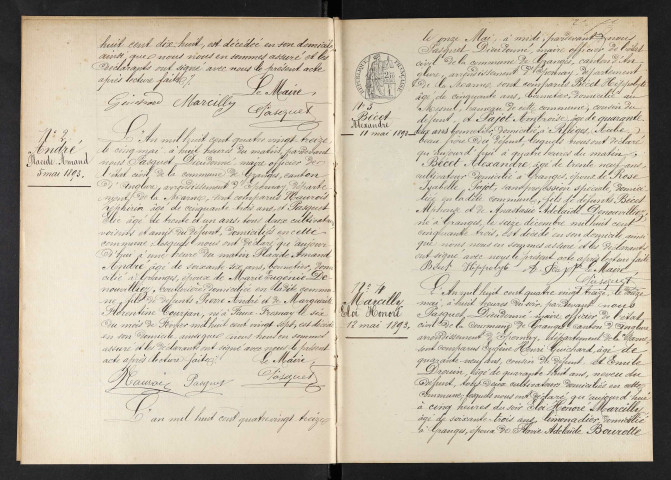 huit cent dix-huit, est décédé en son domicile
ainsi que nous nous en sommes assuré et les
déclarants ont signé avec nous le présent acte
après lecture faite.
Le Maire
Guichard Marcilly
Pasquet
N° 2
André
Placide Amand
5 mai 1893.
L'An mil huit cent quatre vingt treize
le cinq mai, à huit heures du matin, par devant
nous Pasquet, Dieudonné, maire officier de
l'état civil de la commune de Granges, canton
d'Anglure, arrondissement d'Epernay, département
de la Marne, sont comparus
âgé de cinquante trois ans et Pasquet
âgé de trente et un ans, tous deux cultivateurs
voisins et amis du défunt, domiciliés en cette
commune, lesquels nous ont déclaré que aujourd'
hui à une heure du matin Placide Amand
André, âgé de soixante six ans,
à Granges, époux de Marie Eugénie
domiciliée en la dite commune
fils de défunts Pierre André et de Marguerite
Florentine né à Faux Fresnay le six
du mois de février mil huit cent vingt sept, est décédé
en son domicile
assuré et les déclarants ont signé avec nous le présent
acte après lecture faite.
Le Maire
Pasquet
L'An mil huit cent quatre vingt treize
le onze Mai, à midi, par devant nous
Pasquet Dieudonné, maire officier de l'état
civil de la commune de Granges, canton d'An
glure, arrondissement d'Epernay, département
de la Marne, sont comparus Bécot Hippolyte
âgé de cinquante ans,
de cette commune, cousin du
défunt, et Pajot Ambroise, âgé de quarante
ans domicilié à Aube
tous deux du défunt, lesquels nous ont déclaré
que aujourd'hui, à quatre heures du matin
Bécot Alexandre, âgé de trente neuf ans,
cultivateur domicilié à Granges, époux de Rose
Isabelle Pajot, sans profession
en la dite commune, fils de défunts Bécot
et de Anastasie Adelaïde
né à Granges, le seize décembre mil huit cent
cinquante trois, est décédé en son domicile, ainsi
que nous nous en sommes assuré et les déclarants
ont signé avec nous le présent acte après lecture faite
Bécot Hippolyte A. Pajot Le Maire
Pasquet
N° 3
Bécot
Alexandre
11 mai 1893.
N° 4
Marcilly
Eloi Honoré
12 mai 1893.
L'An mil huit cent quatre vingt treize, le treize
mai, à huit heures du soir, par devant nous
Pasquet, Dieudonné, maire officier de l'état
civil de la commune de Granges, canton d'Anglure
arrondissement d'Epernay, département de la Marne
sont comparus Henri Guichard, âgé de
quarante neuf ans, cousin du défunt et Emile
Drouin, âgé de quarante huit ans, neveu du
défunt, tous deux cultivateurs domiciliés en cette
commune, lesquels nous ont déclaré que aujourd'hui
à cinq heures du soir Eloi Honoré Marcilly
âgé de soixante trois ans, domicilié
à Granges, époux de Marie Adelaïde Bourotte